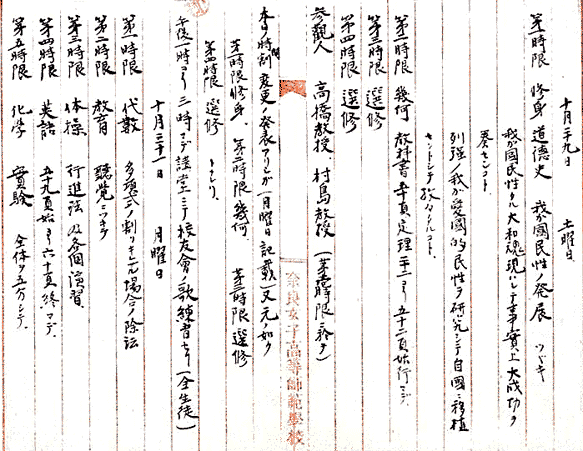 十月二十九日 土曜日
第一時限 修身 道徳史 我が國民性ノ発展 ツヾキ
我が國民性タル大和魂現ハレテ事実上大成功ヲ
奏セシコト
列強ノ我が愛國的民性ヲ研究シテ自國ニ移植
セントシテ
第二時限 幾何 教科書 五十頁定理二十二ヨリ五十二頁始行マデ
第三時限 選修
第四時限 選修
参觀人 高橋教授、村島教授(第二時限ニ於テ)
本日時間割変更ノ発表アリシガ(月曜日記載)又元ノ如ク
第一時限修身、第二時限幾何、第三時限選修
第四時限選修 トセリ
午後一時ヨリ三時マデ講堂ニテ校友會ノ歌練習セリ(全生徒)
十月三十一日 月曜日
第一時限 代数 多項式ノ割リキレル場合ノ除法
第二時限 教育 聴覚ニツキテ
第三時限 体操 行進法及各個演習
第四時限 英語 五十九頁始ヨリ六十頁終マデ
第五時限 化学 實驗 全体ヲ五分シテ、
奈良女子高等師範學校